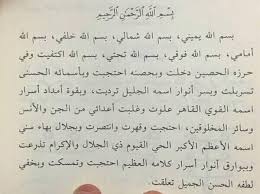 بسم الله الرحمن الرحيم
بسم الله يميني، بسم الله شمالي، بسم الله خلفي، بسم الله
أمامي، بسم الله فوقي، بسم الله تحتي، بسم الله اكتنفت وفي
حرزه الحصين دخلت وبحصنه احتجبت وبأسمائه الحسنى
تسربلت وبسر أنوار اسمه الجليل ترديت، وبقوة أمداد أسرار
اسمه القوي القاهر علوت وغلبت أعدائي من الجن والأنس
وسائر المخلوقين، احتجبت وقهرت وانتصرت وبجلال بهاء سني
اسمه الأعظم الأكبر الحي القيوم ذي الجلال والإكرام تذرعت
وببوارق أنوار أسرار كلامه العظيم احتجبت وتمسكت وبخفي
لطفه الحسن الجميل تعلقت.